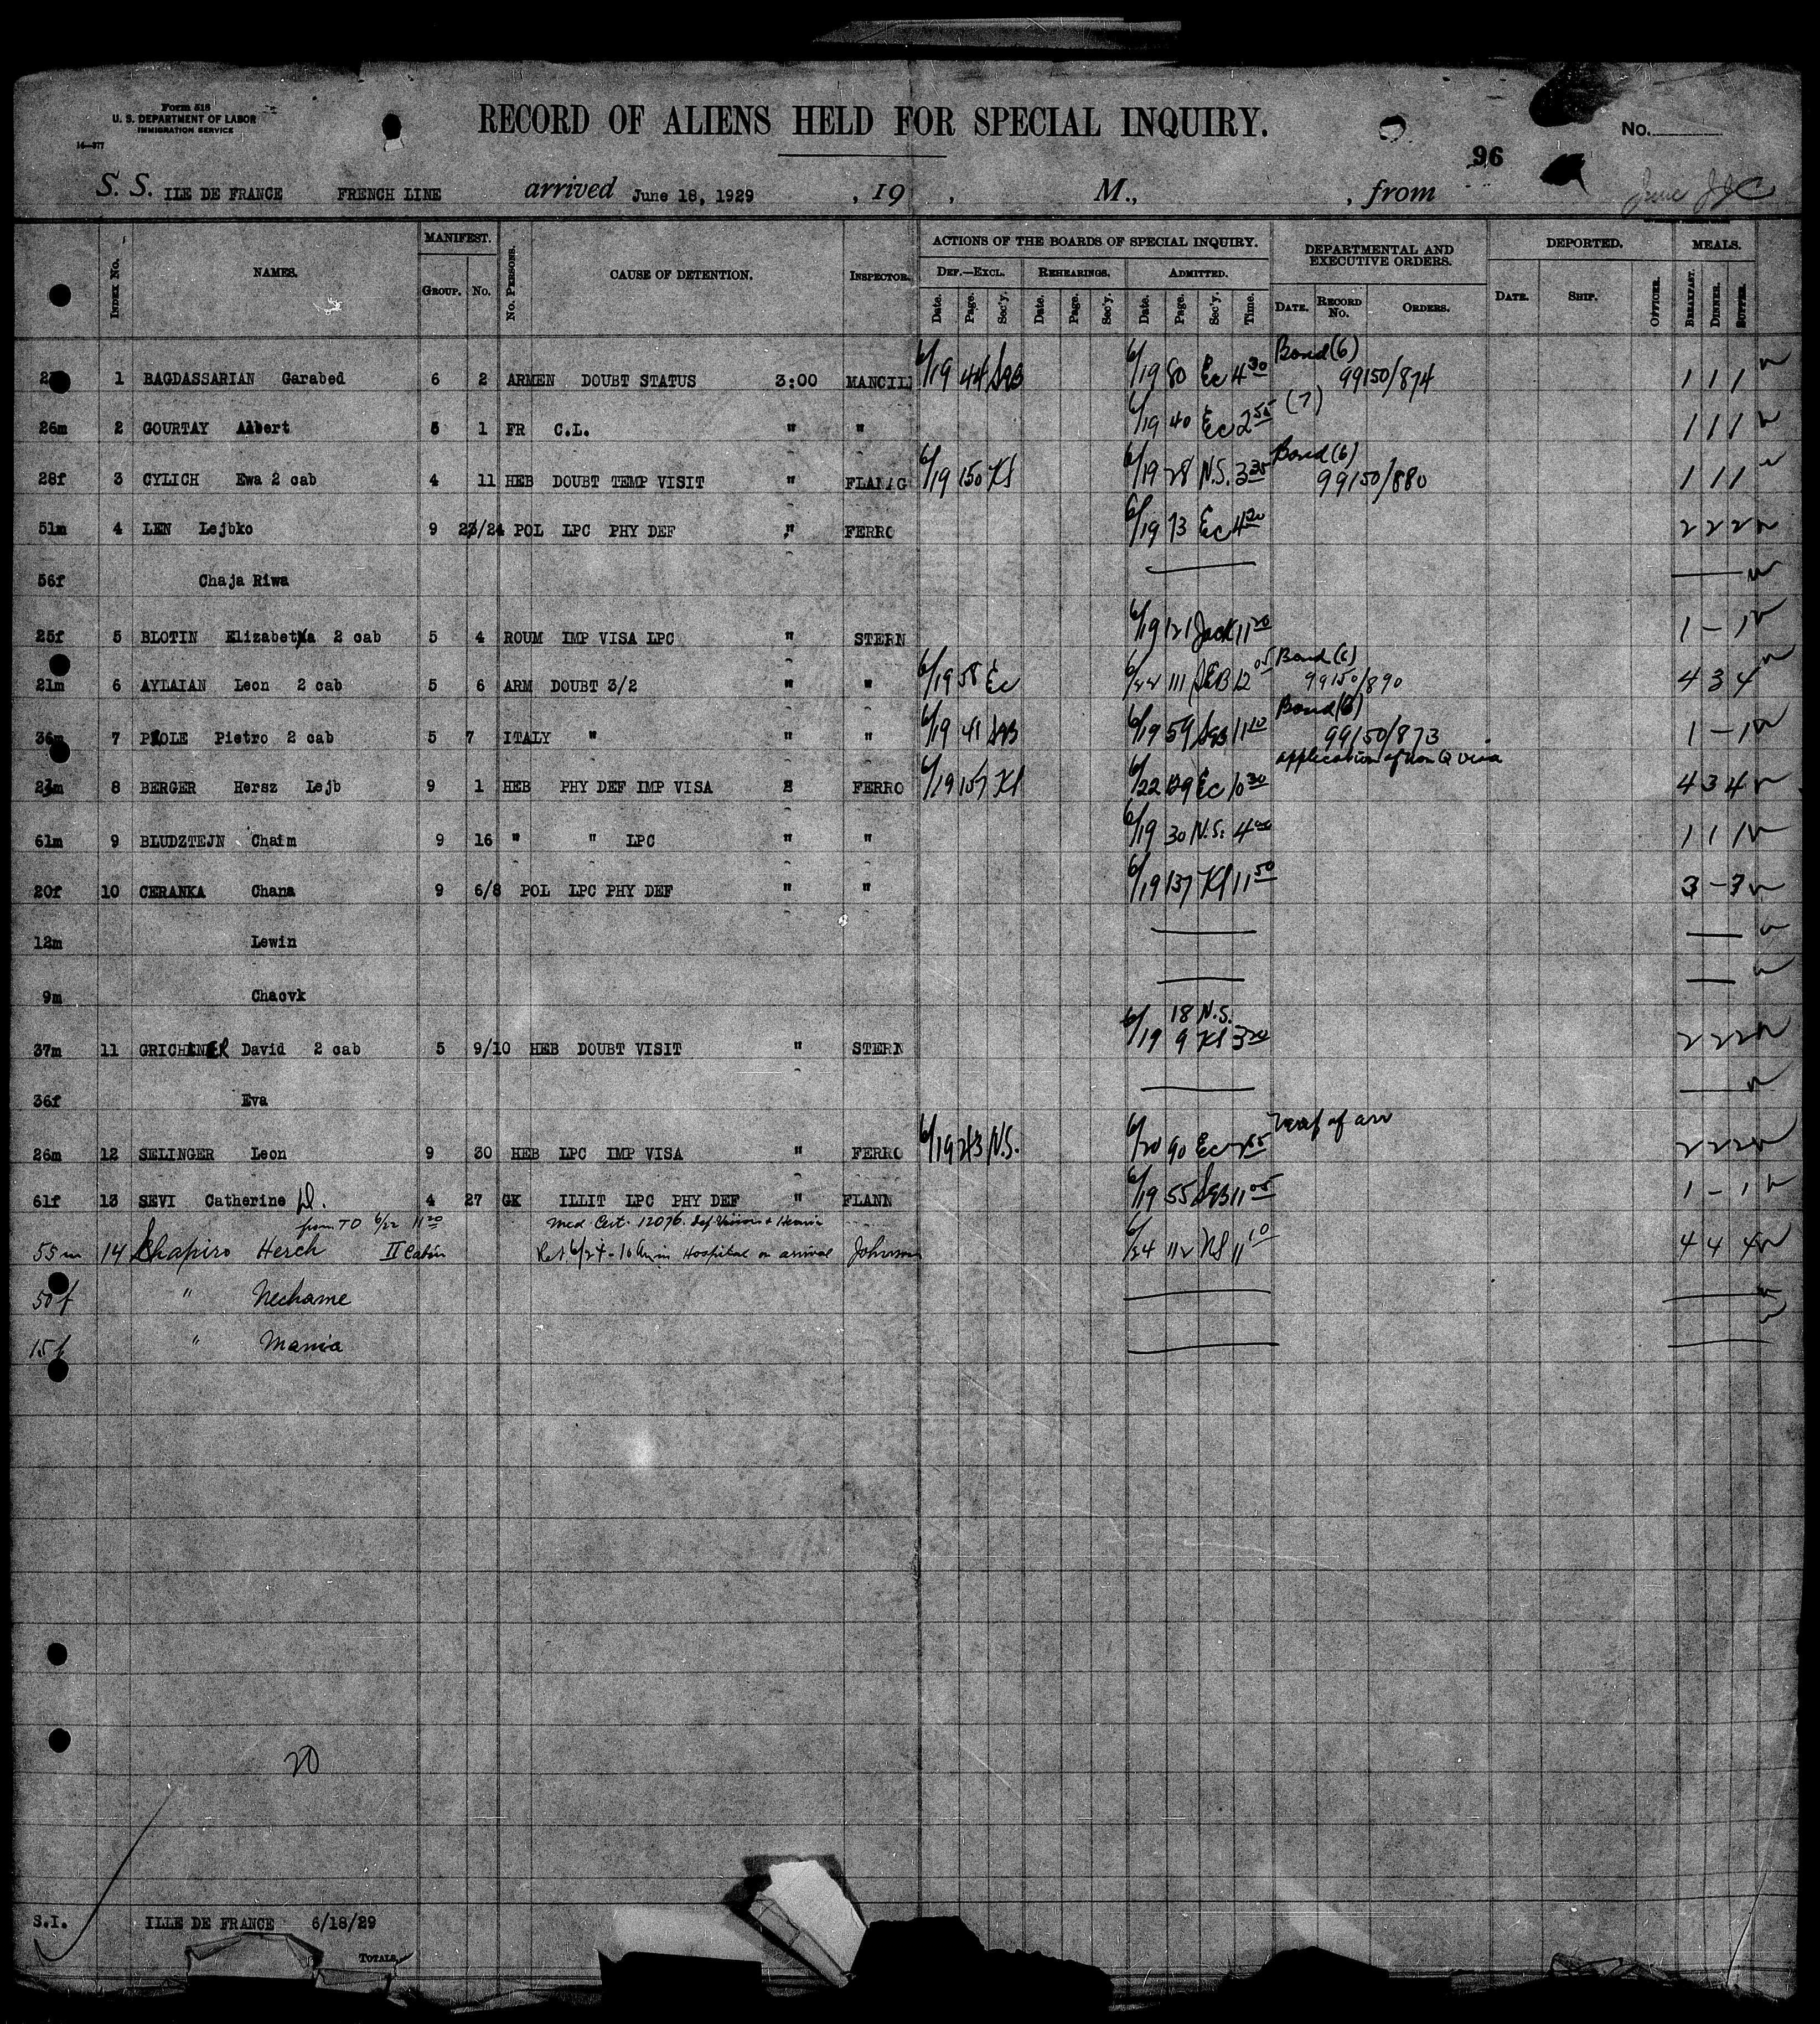 Form 518
U. S. DEPARTMENT OF LABOR
IMMIGRATION SERVICE
14—377
RECORD OF ALIENS HELD FOR SPECIAL INQUIRY.
No.
96
S. S. ILE DE FRANCE FRENCH LINE arrived June 18, 1929 , 19 , M., , from
INDEX No. NAMES. MANIFEST. GROUP. No. No. PERSONS. CAUSE OF DETENTION. INSPECTOR. ACTIONS OF THE BOARDS OF SPECIAL INQUIRY. DEF.—EXCL. Date. Page. Sec'y. REHEARINGS. Date. Page. Sec'y. ADMITTED. Date. Page. Sec'y. Time. DEPARTMENTAL AND EXECUTIVE ORDERS. DATE. RECORD No. ORDERS. DEPORTED. DATE. SHIP. OFFICER. MEALS. BREAKFAST. DINNER. SUPPER.
1 BAGDASSARIAN Garabed 6 2 ARMEN DOUBT STATUS 3:00 MANCIL 6/19 44 6/19 80 Ec 4 30 Bond (6) 99150/874 1 1 1
26m 2 GOURTAY Albert 5 1 FR C.L. " " 6/19 40 Ec 2 55 (7) 1 1 1
28f 3 CYLICH Ewa 2 cab 4 11 HEB DOUBT TEMP VISIT " FLANAG 6/19 150 Kl 6/19 28 N.S. 3 35 Bond (6) 99150/880 1 1 1
51m 4 LEN Lejbko 9 23/24 POL LPC PHY DEF " FERRO 6/19 73 Ec 4 20 2 2 2
56f Chaja Riwa
25f 5 BLOTIN Elizabetha 2 cab 5 4 ROUM IMP VISA LPC " STERN 6/19 121 Jack 11 20 1 – 1
21m 6 AYLAIAN Leon 2 cab 5 6 ARM DOUBT 3/2 " " 6/19 58 Ec 6/22 111 12 05 Bond (6) 99150/890 4 3 4
36m 7 PAOLE Pietro 2 cab 5 7 ITALY " " " 6/19 41 6/19 59 11 10 Bond (6) 99150/873 1 – 1
8 BERGER Hersz Lejb 9 1 HEB PHY DEF IMP VISA " FERRO 6/19 157 Kl 6/22 129 Ec 10 30 application of Non Q visa 4 3 4
61m 9 BLUDZTEJN Chaim 9 16 " " LPC " " 6/19 30 N.S. 4 00 1 1 1
20f 10 CERANKA Chana 9 6/8 POL LPC PHY DEF " " 6/19 137 Kl 11 50 3 – 3
12m Lewin
9m Chaovk
18 N.S.
37m 11 GRICHENER David 2 cab 5 9/10 HEB DOUBT VISIT " STERN 6/19 9 Kl 3 20 2 2 2
36f Eva
26m 12 SELINGER Leon 9 30 HEB LPC IMP VISA " FERRO 6/19 243 N.S. 6/20 90 Ec of arr 2 2 2
61f 13 SEVI Catherine 4 27 GK ILLIT LPC PHY DEF " FLANN 6/19 55 11 05 1 – 1
from TD 6/22 11 20 Med Cert. 12076. Def Vision &
55m 14 Shapiro Herch II Cabin 6/24 – 10 Am in Hospital on arrival Johnson 6/24 112 NS 11 10 4 4 4
50f " Nechame
15f " Mania
20
S.I. ILLE DE FRANCE 6/18/29
TOTALS,